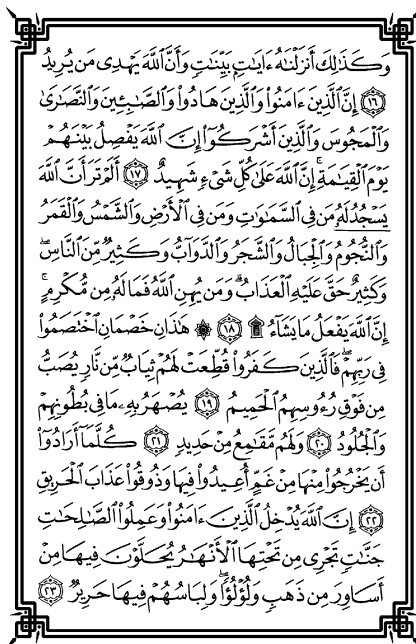 وَكَذَٰلِكَ أَنزَلْنَٰهُ ءَايَٰتٍۭ بَيِّنَٰتٍ وَأَنَّ ٱللَّهَ يَهْدِى مَن يُرِيدُ
﴿١٦﴾ إِنَّ ٱلَّذِينَ ءَامَنُوا۟ وَٱلَّذِينَ هَادُوا۟ وَٱلصَّٰبِـِٔينَ وَٱلنَّصَٰرَىٰ
وَٱلْمَجُوسَ وَٱلَّذِينَ أَشْرَكُوٓا۟ إِنَّ ٱللَّهَ يَفْصِلُ بَيْنَهُمْ
يَوْمَ ٱلْقِيَٰمَةِ ۚ إِنَّ ٱللَّهَ عَلَىٰ كُلِّ شَىْءٍ شَهِيدٌ ﴿١٧﴾ أَلَمْ تَرَ أَنَّ ٱللَّهَ
يَسْجُدُ لَهُۥ مَن فِى ٱلسَّمَٰوَٰتِ وَمَن فِى ٱلْأَرْضِ وَٱلشَّمْسُ وَٱلْقَمَرُ
وَٱلنُّجُومُ وَٱلْجِبَالُ وَٱلشَّجَرُ وَٱلدَّوَآبُّ وَكَثِيرٌ مِّنَ ٱلنَّاسِ ۖ
وَكَثِيرٌ حَقَّ عَلَيْهِ ٱلْعَذَابُ ۗ وَمَن يُهِنِ ٱللَّهُ فَمَا لَهُۥ مِن مُّكْرِمٍ ۚ
إِنَّ ٱللَّهَ يَفْعَلُ مَا يَشَآءُ ۩ ﴿١٨﴾ ۞ هَٰذَانِ خَصْمَانِ ٱخْتَصَمُوا۟
فِى رَبِّهِمْ ۖ فَٱلَّذِينَ كَفَرُوا۟ قُطِّعَتْ لَهُمْ ثِيَابٌ مِّن نَّارٍ يُصَبُّ
مِن فَوْقِ رُءُوسِهِمُ ٱلْحَمِيمُ ﴿١٩﴾ يُصْهَرُ بِهِۦ مَا فِى بُطُونِهِمْ
وَٱلْجُلُودُ ﴿٢٠﴾ وَلَهُم مَّقَٰمِعُ مِنْ حَدِيدٍ ﴿٢١﴾ كُلَّمَآ أَرَادُوٓا۟
أَن يَخْرُجُوا۟ مِنْهَا مِنْ غَمٍّ أُعِيدُوا۟ فِيهَا وَذُوقُوا۟ عَذَابَ ٱلْحَرِيقِ
﴿٢٢﴾ إِنَّ ٱللَّهَ يُدْخِلُ ٱلَّذِينَ ءَامَنُوا۟ وَعَمِلُوا۟ ٱلصَّٰلِحَٰتِ
جَنَّٰتٍ تَجْرِى مِن تَحْتِهَا ٱلْأَنْهَٰرُ يُحَلَّوْنَ فِيهَا مِنْ
أَسَاوِرَ مِن ذَهَبٍ وَلُؤْلُؤًا ۖ وَلِبَاسُهُمْ فِيهَا حَرِيرٌ ﴿٢٣﴾